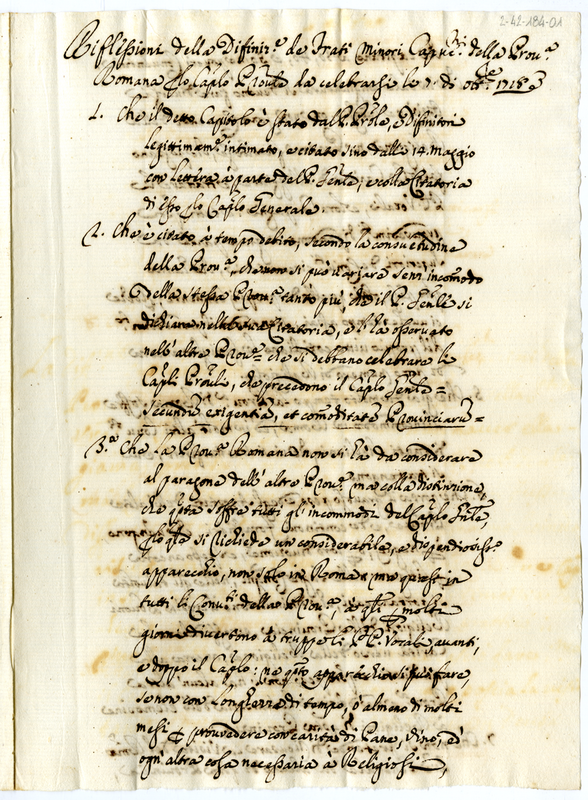 2-42-184-01
Riflessioni della Difiniz.e de Frati Minori Capuc.ni della Prov.a
Romana p lo Caplo Prōvle da celebrarsi le 7. di 8bre 1718
1. Che il detto Capitolo è stato dal P. Prōle, e Difinitori
legittimam.e intimato, e citato sino dalli 14. Maggio
con lettera à parte del P. Gēnle, e colla Citatoria
di esso p lo Caplo Generale.
2. Che è citato à tempo debito, secondo la consuetudine
della Prov.a, che non si può variare senz' incōmodo
della stessa Prov.a tanto più, che il P. Gēnle si
dichiara nella sua Citatoria, e l' hà osservato
nell' altre Prov.e che si debbano celebrare li
Capli Prōvli, che precedono il Caplo Gēnle =
Secundū exigentiā, et comōditatē Provinciarū =
3.o Che la Prov.a Romana non si hà da considerare
al paragone dell' altre Prov.e ma colla distinzione,
che q̄sta soffre tutti gl' incommodi del Caplo Gēnle,
p lo q̄le si richiede un considerabile, e dispendiosiss.o
apparecchio, non solo in Roma, ma quasi in
tutti li Conv.ti della Prov.a, à q̄li p molti
giorni divertono à truppe li PP. Vocali, avanti,
e doppo il Caplo: ne q̄sto apparecchio si può fare,
se non con longhezza di tempo, ò almeno di molti
mesi p provvedere con carità di Pane, vino, ed
ogn' altra cosa necessaria à Religiosi,